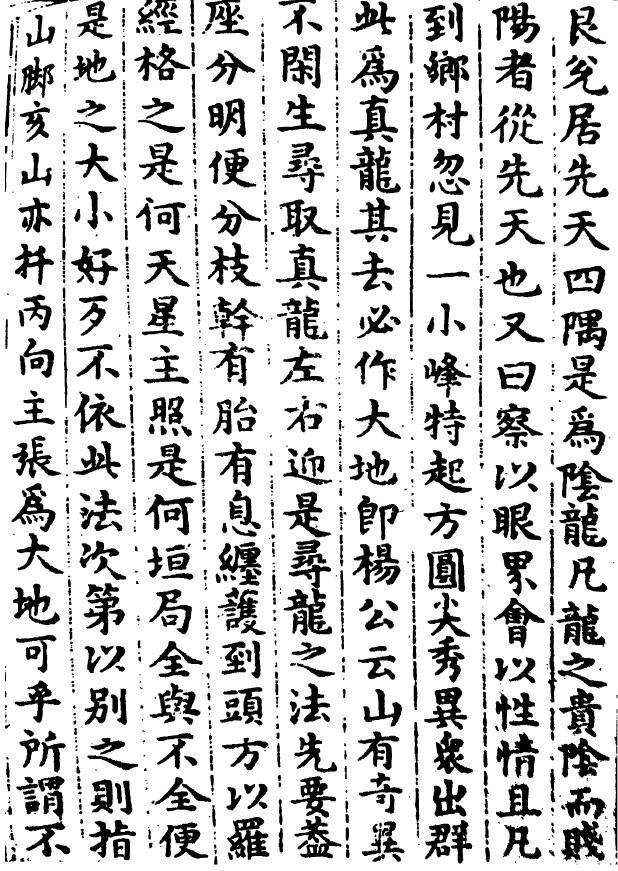 艮兊居先天四隅是爲陰龍凡龍之貴陰而賤
陽者從先天也又曰察以眼界會以性情且凡
到鄉村忽見一小峰特起方圓尖秀異衆出群
此爲真龍其去必作大地卽楊公云山有奇異
不閑生尋取真龍左右迎是尋龍之法先要葢
座分明便分枝幹有胎有息纏護到頭方以羅
經格之是何天星主照是何垣局全與不全便
是地之大小好歹不依此法次第以别之則指
山脚亥山亦扦丙向主張爲大地可乎所謂不